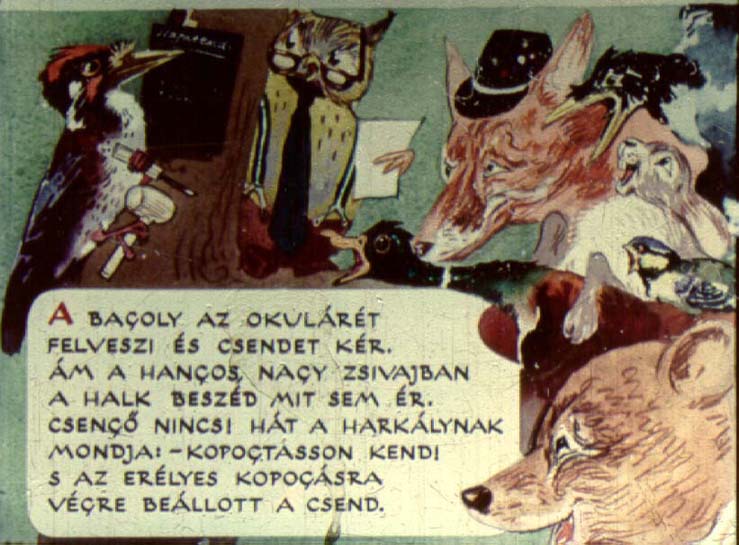 A BAGOLY AZ OKULÁRÉT
FELVESZI ÉS CSENDET KÉR.
ÁM A HANGOS, NAGY ZSIVAJBAN
A HALK BESZÉD MIT SEM ÉR.
CSENGŐ NINCS! HÁT A HARKÁLYNAK
MONDJA: – KOPOGTASSON KEND!
S AZ ERÉLYES KOPOGÁSRA
VÉGRE BEÁLLOTT A CSEND.